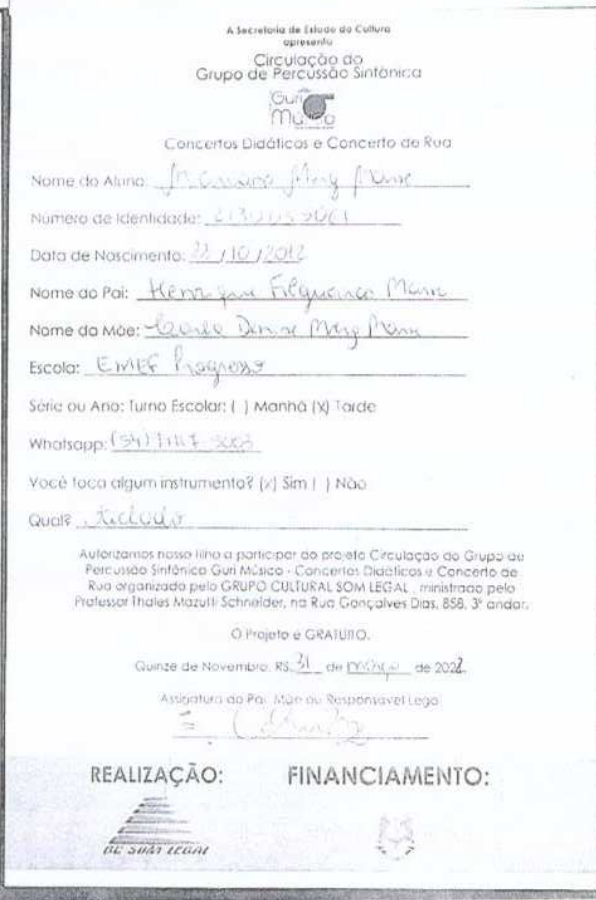 A Secretaria de Estado da Cultura
apresenta
Circulação do
Grupo de Percussão Sinfônica
Guri
Músico
Concertos Didáticos e Concerto de Rua
Nome do Aluno:
Número de Identidade:
Data de Nascimento: 22/10/2012
Nome do Pai: Henrique
Nome da Mãe: Denise
Escola: EMEF Progresso
Série ou Ano: Turno Escolar: ( ) Manhã (X) Tarde
Whatsapp: (54)
Você toca algum instrumento? (x) Sim ( ) Não
Qual? teclado
Autorizamos nosso filho a participar do projeto Circulação do Grupo de
Percussão Sinfônica Guri Músico - Concertos Didáticos e Concerto de
Rua organizado pelo GRUPO CULTURAL SOM LEGAL, ministrado pelo
Professor Thales Mazutti Schneider, na Rua Gonçalves Dias, 858, 3º andar.
O Projeto é GRATUITO.
Quinze de Novembro, RS, 31 de março de 2022.
Assinatura do Pai, Mãe ou Responsável Legal
REALIZAÇÃO: FINANCIAMENTO:
GC SOM LEGAL